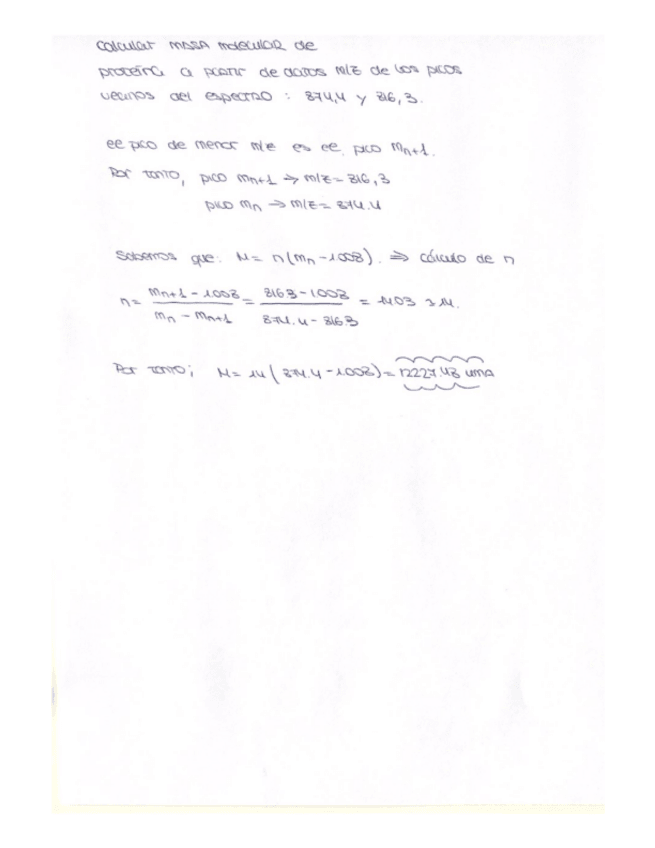 Calcular MASA molecular de
proteína a partir de datos m/z de los picos
vecinos del espectro : 874,4 y 816,3.
ee pico de menor m/e es ee pico mn+1.
Por tanto, pico mn+1 → m/z = 816,3
pico mn → m/z = 874.4
Sabemos que: M = n(mn - 1.008). ⇒ cálculo de n
n = (mn+1 - 1.008) / (mn - mn+1) = (816.3 - 1.008) / (874.4 - 816.3) = 14.03 ≃ 14.
Por tanto; M = 14 (874.4 - 1.008) = 12227.48 uma